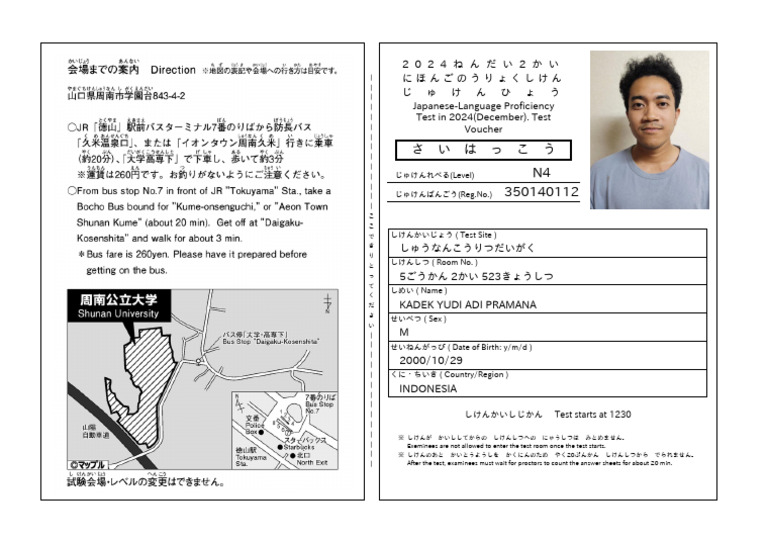 会場までの案内 Direction ※地図の表記や会場への行き方は目安です。
山口県周南市学園台843-4-2
○JR「徳山」駅前バスターミナル7番のりばから防長バス
「久米温泉口」、または「イオンタウン周南久米」行きに乗車
(約20分)、「大学高専下」で下車し、歩いて約3分
※運賃は260円です。お釣りがないようにご注意ください。
○From bus stop No.7 in front of JR "Tokuyama" Sta., take a
Bocho Bus bound for "Kume-onsenguchi," or "Aeon Town
Shunan Kume" (about 20 min). Get off at "Daigaku-
Kosenshita" and walk for about 3 min.
*Bus fare is 260yen. Please have it prepared before
getting on the bus.
周南公立大学
Shunan University
バス停「大学・高専下」
Bus Stop "Daigaku-Kosenshita"
山陽
自動車道
7番のりば
Bus Stop
No.7
交番
Police
Box
スターバックス
Starbucks
徳山駅
Tokuyama
Sta.
北口
North Exit
©マップル
試験会場・レベルの変更はできません。
ここできりとってください
2024ねんだい2かい
にほんごのうりょくしけん
じゅけんひょう
Japanese-Language Proficiency
Test in 2024(December). Test
Voucher
さいはっこう
じゅけんれべる(Level) N4
じゅけんばんごう(Reg.No.) 350140112
しけんかいじょう ( Test Site )
しゅうなんこうりつだいがく
しけんしつ ( Room No. )
5ごうかん 2かい 523きょうしつ
しめい ( Name )
KADEK YUDI ADI PRAMANA
せいべつ ( Sex )
M
せいねんがっぴ ( Date of Birth: y/m/d )
2000/10/29
くに・ちいき ( Country/Region )
INDONESIA
しけんかいしじかん Test starts at 1230
※ しけんが かいししてからの しけんしつへの にゅうしつは みとめません。
Examinees are not allowed to enter the test room once the test starts.
※ しけんのあと かいとうようしを かくにんのため やく20ぷんかん しけんしつから でられません。
After the test, examinees must wait for proctors to count the answer sheets for about 20 min.